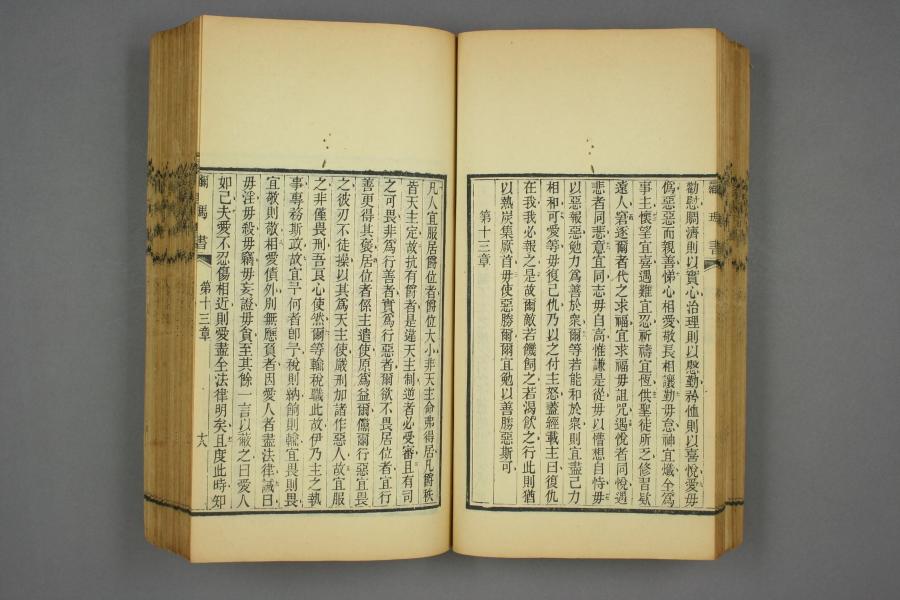 勸慰賙濟則以實心治理則以慇勤矜恤則以喜悅愛毋
偽惡惡而親善悌心相愛敬長相讓勤毋怠神宜熾全為
事主懷望宜喜遇難宜忍祈禱宜恆供聖徒所乏修習欵
遠人窘逐爾者代之求福宜求福毋詛咒遇悅者同悅遇
悲者同悲意宜同志毋自高惟謙是從毋以僭想自恃毋
以惡報惡勉力為善於衆爾等若能和於衆則宜盡己力
相和可愛等毋復己仇乃以之付主怒蓋經載主曰復仇
在我我必報之是故爾敵若饑飼之若渴飲之行此則猶
以熱炭集厥首毋使惡勝爾爾宜勉以善勝惡斯可
第十三章
凡人宜服居爵位者爵位大小非天主命弗得居凡爵秩
皆天主定故抗有爵者是違天主制逆者必受審且有司
之可畏非為行善者實為行惡者爾欲不畏居位者宜行
善更得其襃居位者係主遣使原為益爾儻爾行惡宜畏
之彼刃不徒操以其為天主使嚴刑加諸作惡人故宜服
之非僅畏刑吾良心使然爾等輸稅職此故伊乃主之執
事專務斯政故宜予何者卽予稅則納餉則輸宜畏則畏
宜敬則敬相愛債外別無應負者因愛人者盡法律誡曰
毋淫毋殺毋竊毋妄證毋貪至其餘一言以蔽之曰愛人
如己夫愛不忍傷相近則愛盡全法律明矣且度此時知
羅馬書
第十三章